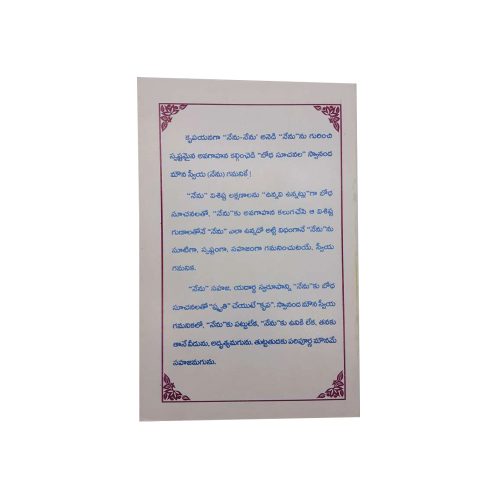 కృపయనగా "నేను-నేను' అనెడి "నేను"ను గురించి
స్పష్టమైన అవగాహన కల్గించెడి "బోధ సూచనల" స్వానంద
మౌన స్వీయ (నేను) గమనికే !
"నేను" విశిష్ట లక్షణాలను "ఉన్నవి ఉన్నట్లు"గా బోధ
సూచనలతో, "నేను"కు అవగాహన కలుగచేసి ఆ విశిష్ట
గుణాలతోనే "నేను" ఎలా ఉన్నదో అట్టి విధంగానే "నేను"ను
సూటిగా, స్పష్టంగా, సహజంగా గమనించుటయే. స్వీయ
గమనిక.
"నేను" సహజ, యదార్థ స్వరూపాన్ని "నేను"కు బోధ
సూచనలతో "స్మృతి" చేయుటే "కృప". స్వానంద మౌన స్వీయ
గమనికలో, "నేను"కు పట్టులేక, "నేను"కు ఉనికే లేక, తనకు
తానే వీడును. అదృశ్యమగును. తుట్టతుదకు పరిపూర్ణ మౌనమే
సహజమగును.